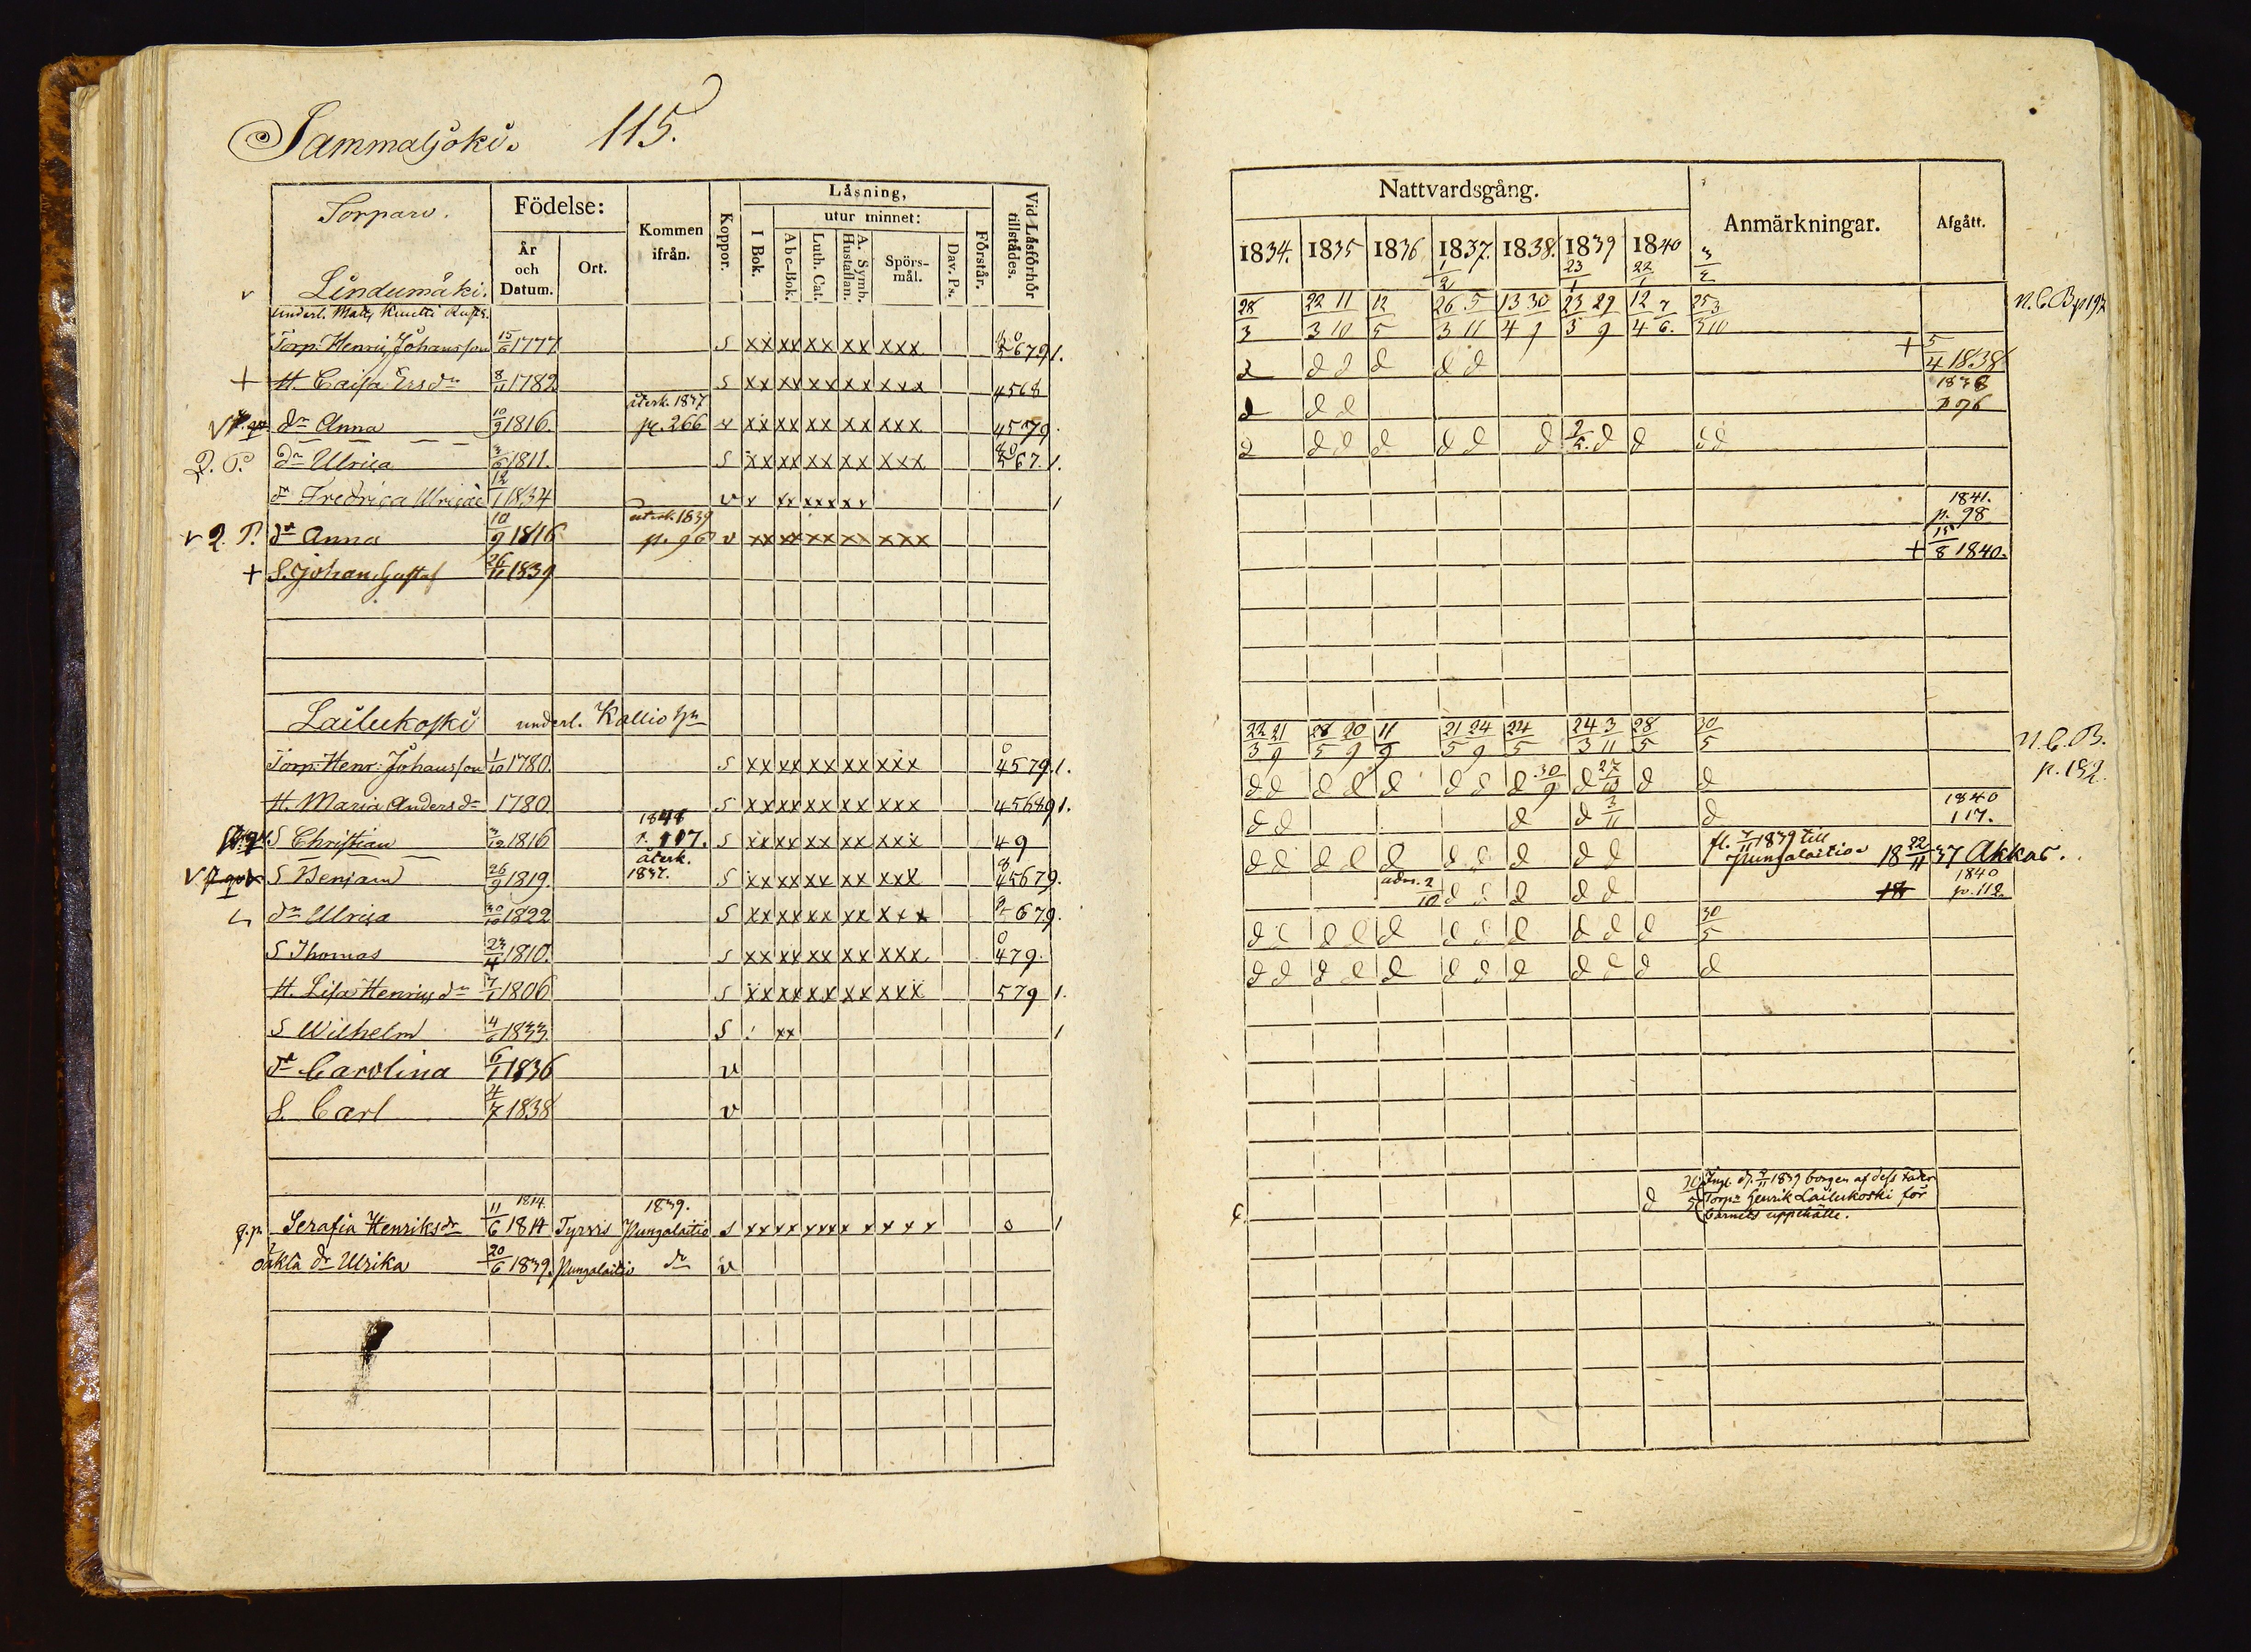 Sammaljoki. 115.
Torpare.
Födelse:
År och Datum.
Ort.
Kommen ifrån.
Koppor.
Läsning,
utur minnet:
I Bok.
Abc-Bok.
Luth. Cat.
A. Symb. Hustaflan.
Spörs-mål.
Dav. Ps.
Förstår.
Vid Läsförhör tillstädes.
v Lindumäki.
underl. Matts
Torp: Henric Johansson 15/6 1777 s xx xx xx xx xxx 1.
+ H. Caisa Ersdr 8/11 1782 s xx xx xx xx xxx 4568
dr Anna 10/9 1816. återk. 1837 p. 266 v xx xx xx xx xxx 4579.
Q. P. dr Ulrica 3/6 1811. s xx xx xx xx xxx 567. 1.
dr Fredrica 12/1 1834 v x xx xx xx 1
v Q. P. dr Anna 10/9 1816 återk. 1839 p. 96 v xx xx xx xx xxx
+ S. Johan Gustaf 26/11 1839
Lailukoski underl. Kallio
Torp: Henr: Johansson 1/10 1780. s xx xx xx xx xxx 4579. 1.
H. Maria Andersdr 1780 s xx xx xx xx xxx 45689 1.
S Christian 3/12 1816 p. 117. s xx xx xx xx xxx 49
S Benjam 26/9 1819. återk. 1837. s xx xx xx xx xxx 45679.
dr Ulrica 30/10 1822 s xx xx xx xx xxx 679
S Thomas 23/4 1810. s xx xx xx xx xxx 479.
H. Lisa Henricsdr 7/1 1806 s xx xx xx xx xxx 579 1.
S Wilhelm 4/6 1833. s xx 1
dr Carolina 6/1 1836 v
S. Carl 4/7 1838 v
1814. 1839.
q.p. Serafia Henriksdr 11/6 1814 Tyrvis Pungalaitio s xx xx xxxx x x x x 0 1
oäkta dr Ulrika 20/6 1839. Pungalaitio dr v
Nattvardsgång.
Anmärkningar.
Afgått.
1834. 1835 1836 1837. 1838. 1839 1840
1/2 23/1 22/1
28/3 22/3 11/10 12/5 26/3 5/11 13/4 30/9 23/3 29/9 12/4 7/6. 25/3 3/10
N. C. B. p 192
d d d d d d + 5/4 1838
d d d 1838 p 96
d d d d d d d 2/5. d d d d
1841. p. 98
+ 15/8 1840.
22/3 21/9 28/5 20/9 11/9 21/5 24/9 24/5 24/3 3/11 28/5 30/5
N. C. B. p. 182.
d d d d d d d d 30/9 d 27/10 d d
d d d d 3/11 d 1840 117.
d d d d d d d d d d fl. 7/11 1839 till Pungalaitio 18 22/11 37 Akkas.
adm. 2/10 d d d d d 1840 p. 112.
d d d d d d d d d d d 30/5
d d d d d d d d d d d d
d 20/5
1839 borgen af dess fader
Torpn Henrik Lailukoski för
barnets uppehälle.